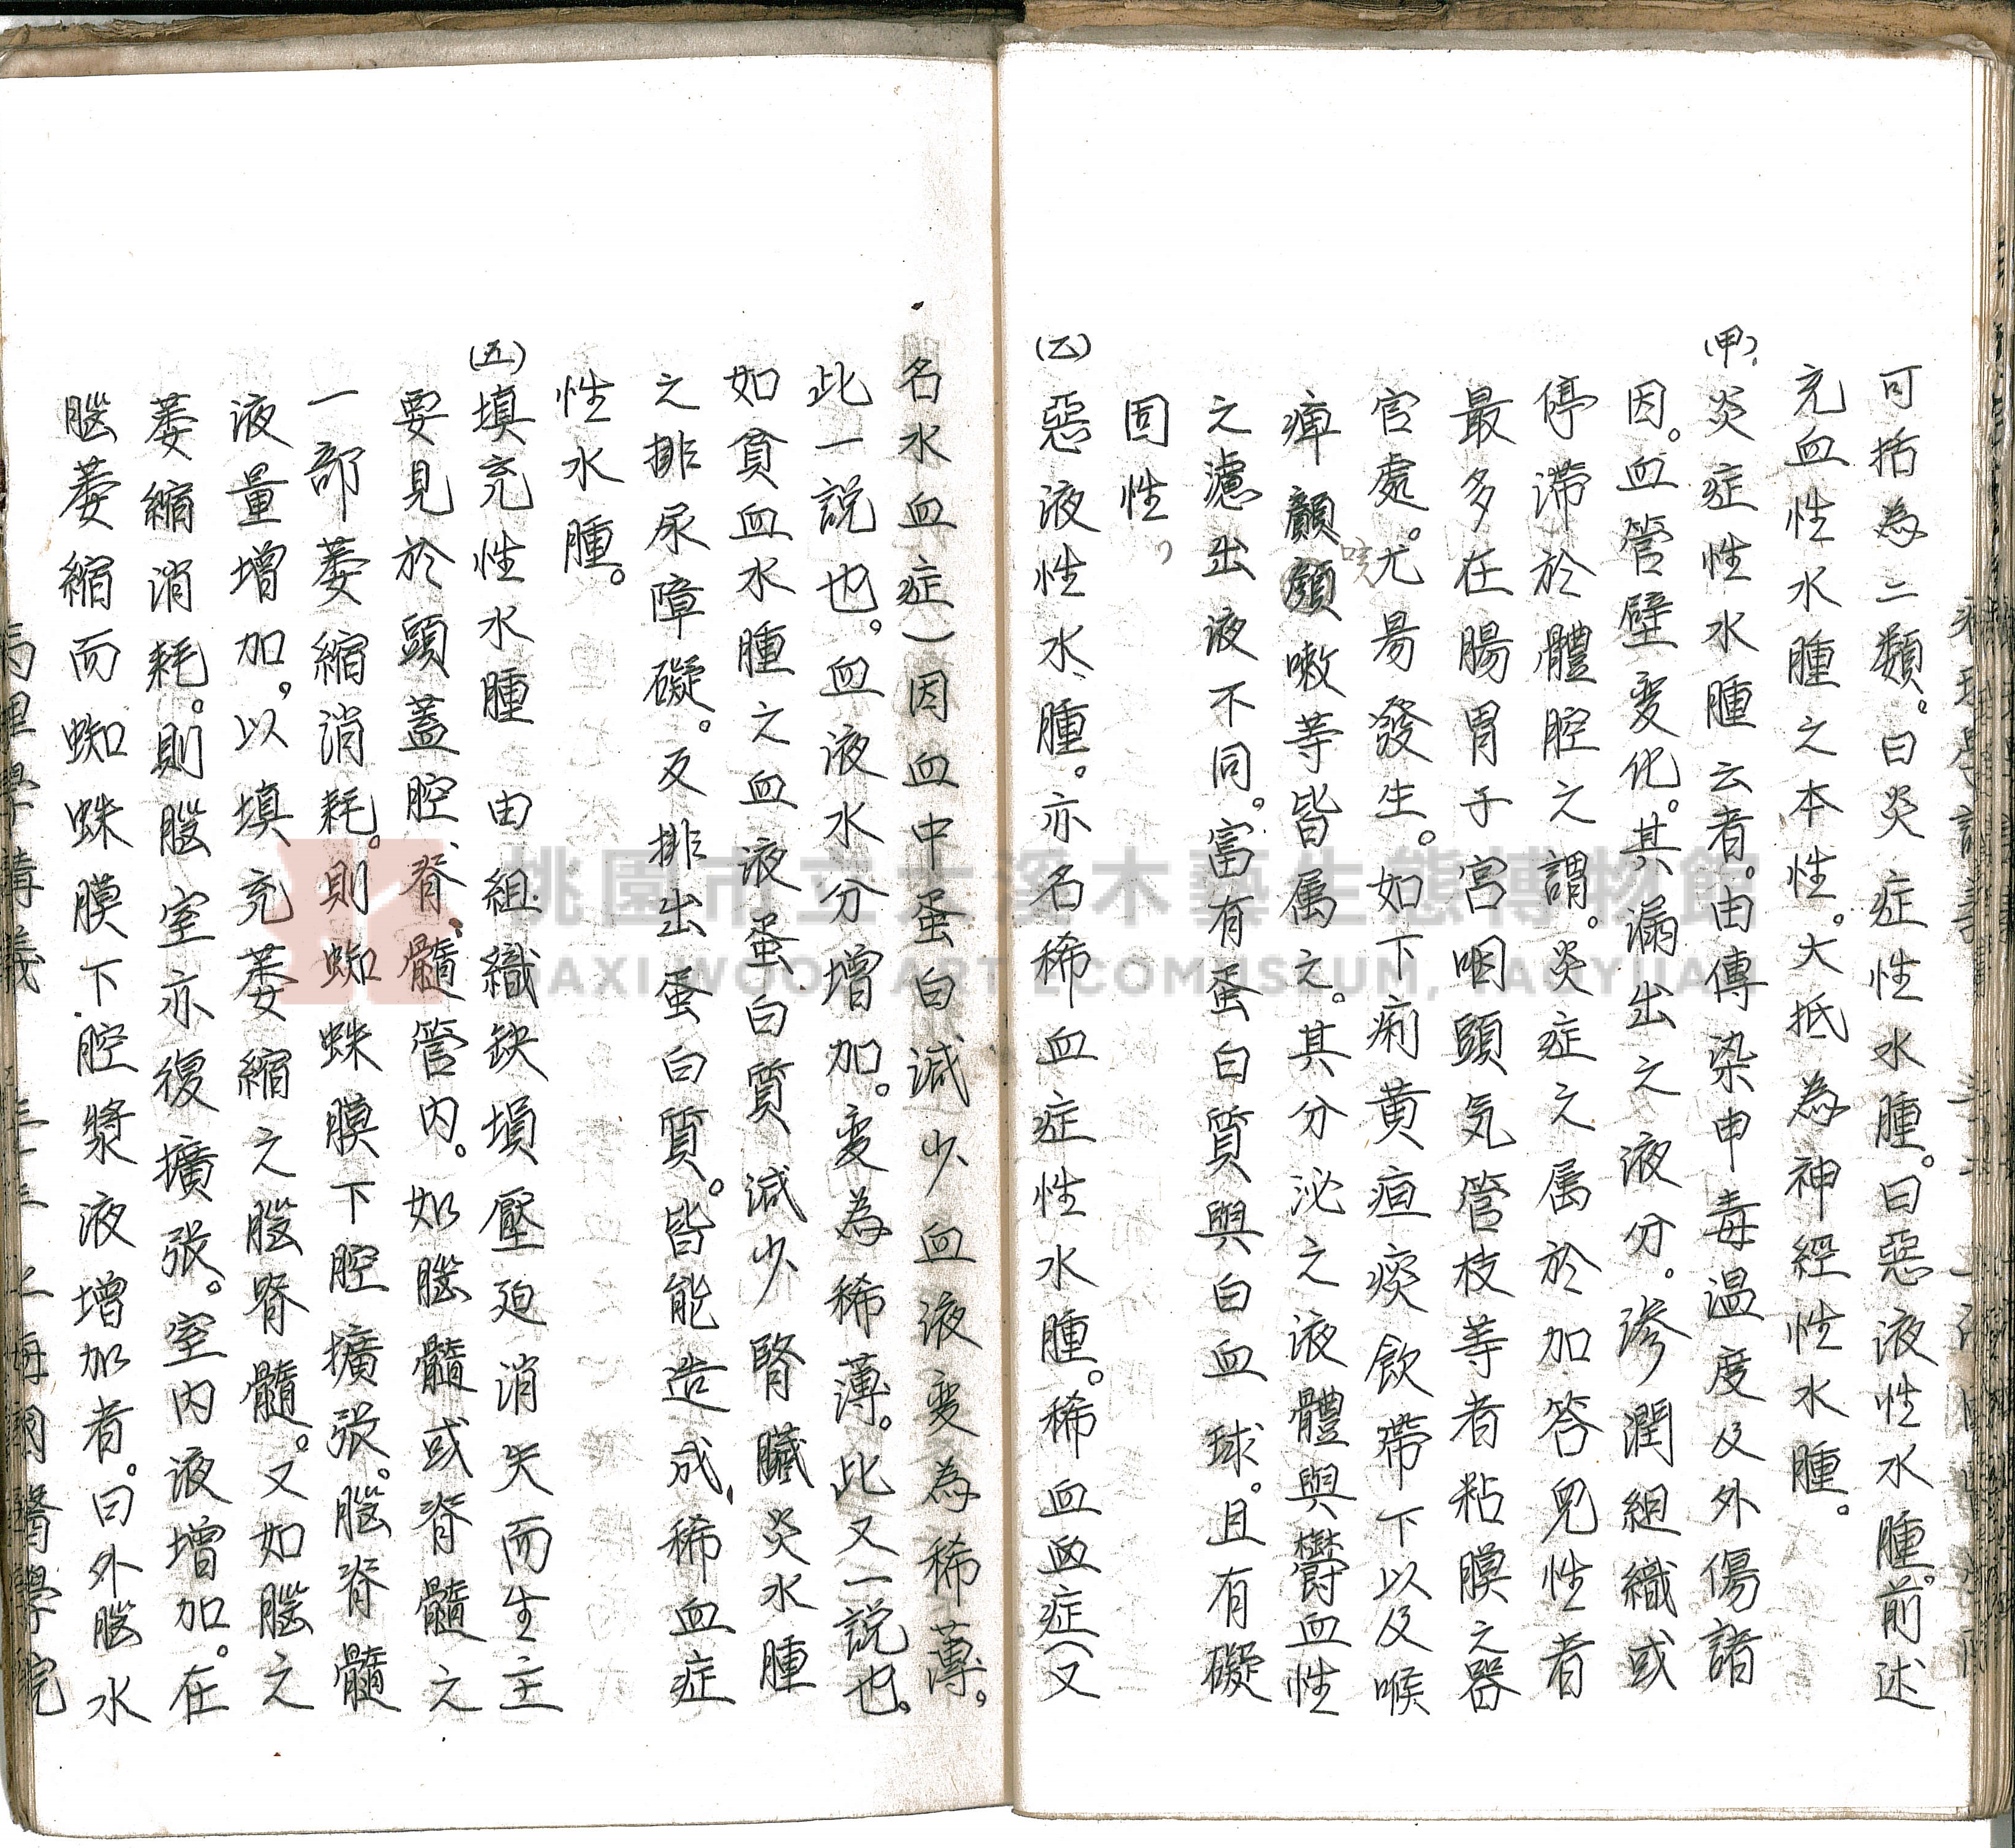 可括為二類。曰炎症性水腫。曰惡液性水腫。前述
充血性水腫之本性。大抵為神經性水腫。
(甲)炎症性水腫云者。由傳染中毒溫度及外傷諸
因。血管壁变化。其漏出之液分。滲潤組織或
停滯於體腔之謂。炎症之属於加答兒性者
最多在腸胃子宮咽頭気管枝等者粘膜之器
官處。尤易發生。如下痢黄疸痰飲帶下以及喉
痺顱顏嗽等皆属之。其分泌之液體與欝血性
咳
之濾出液不同。富有蛋白質與白血球。且有礙
固性,
(乙)惡液性水腫。亦名稀血症性水腫。稀血血症(又
名水血症)因血中蛋白減少血液变為稀薄。
此一說也。血液水分增加。变為稀薄。此又一說也。
如貧血水腫之血液蛋白質減少腎臟炎水腫
之排尿障礙。及排出蛋白質。皆能造成、稀血症
性水腫。
(五)填充性水腫 由組織缺損壓迫消失而生主
要見於頭蓋腔、脊髓管內。如腦髓或脊髓之
一部萎縮消耗。則蜘蛛膜下腔擴張。腦脊髓
液量增加,以填充萎縮之腦脊髓。又如腦之
萎縮消耗。則腦室亦復擴張。室內液增加。在
腦萎縮而蜘蛛膜下腔漿液增加者。曰外腦水
桃園市立大溪木藝生態博物館
DAXI WOOD ART ECOMUSEUM, TAOYUAN